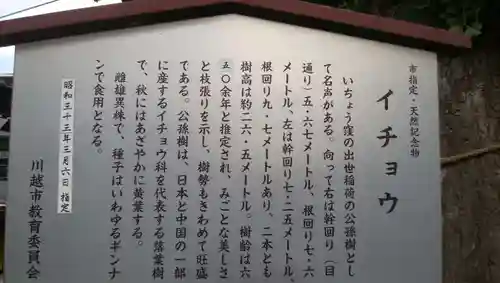 市指定・天然記念物
イチョウ
いちょう窪の出世稲荷の公孫樹とし
て名声がある。向って右は幹回り（目
通り）五・六七メートル、根回り七・六
メートル、左は幹回り七・二五メートル、
根回り九・七メートルあり、二本とも
樹高は約二六・五メートル。樹齢は六
五〇余年と推定され、みごとな美しさ
と枝張りを示し、樹勢もきわめて旺盛
である。公孫樹は、日本と中国の一部
に産するイチョウ科を代表する落葉樹
で、秋にはあざやかに黄葉する。
雌雄異株で、種子はいわゆるギンナ
ンで食用となる。
昭和三十三年三月六日 指定
川越市教育委員会